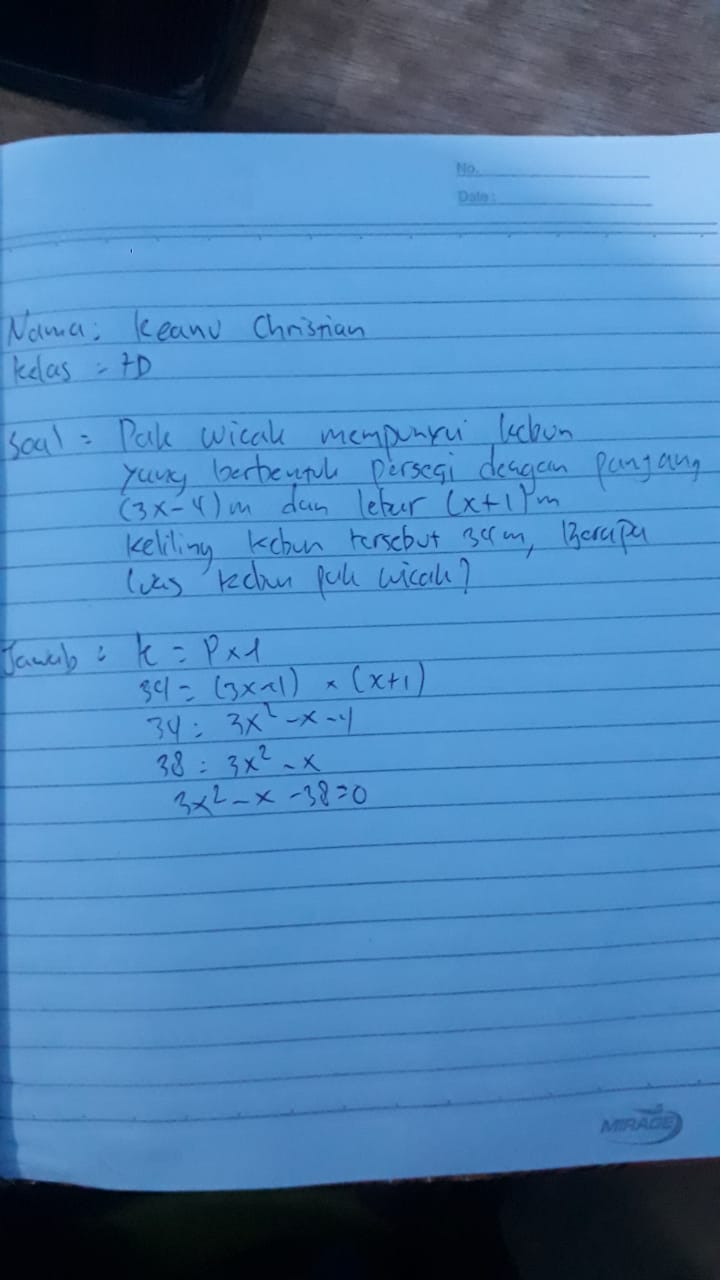 No.
Date:
Nama: Keanu Christian
Kelas = 7D
Soal = Pak wicak mempunyai kebun
yang berbentuk persegi dengan panjang
(3x-4)m dan lebar (x+1)m
keliling kebun tersebut 34m, Berapa
luas kebun pak wicak?
Jawab : k = P x l
34 = (3x-4) x (x+1)
34 = 3x²-x-4
38 = 3x²-x
3x²-x-38=0
MIRAGE